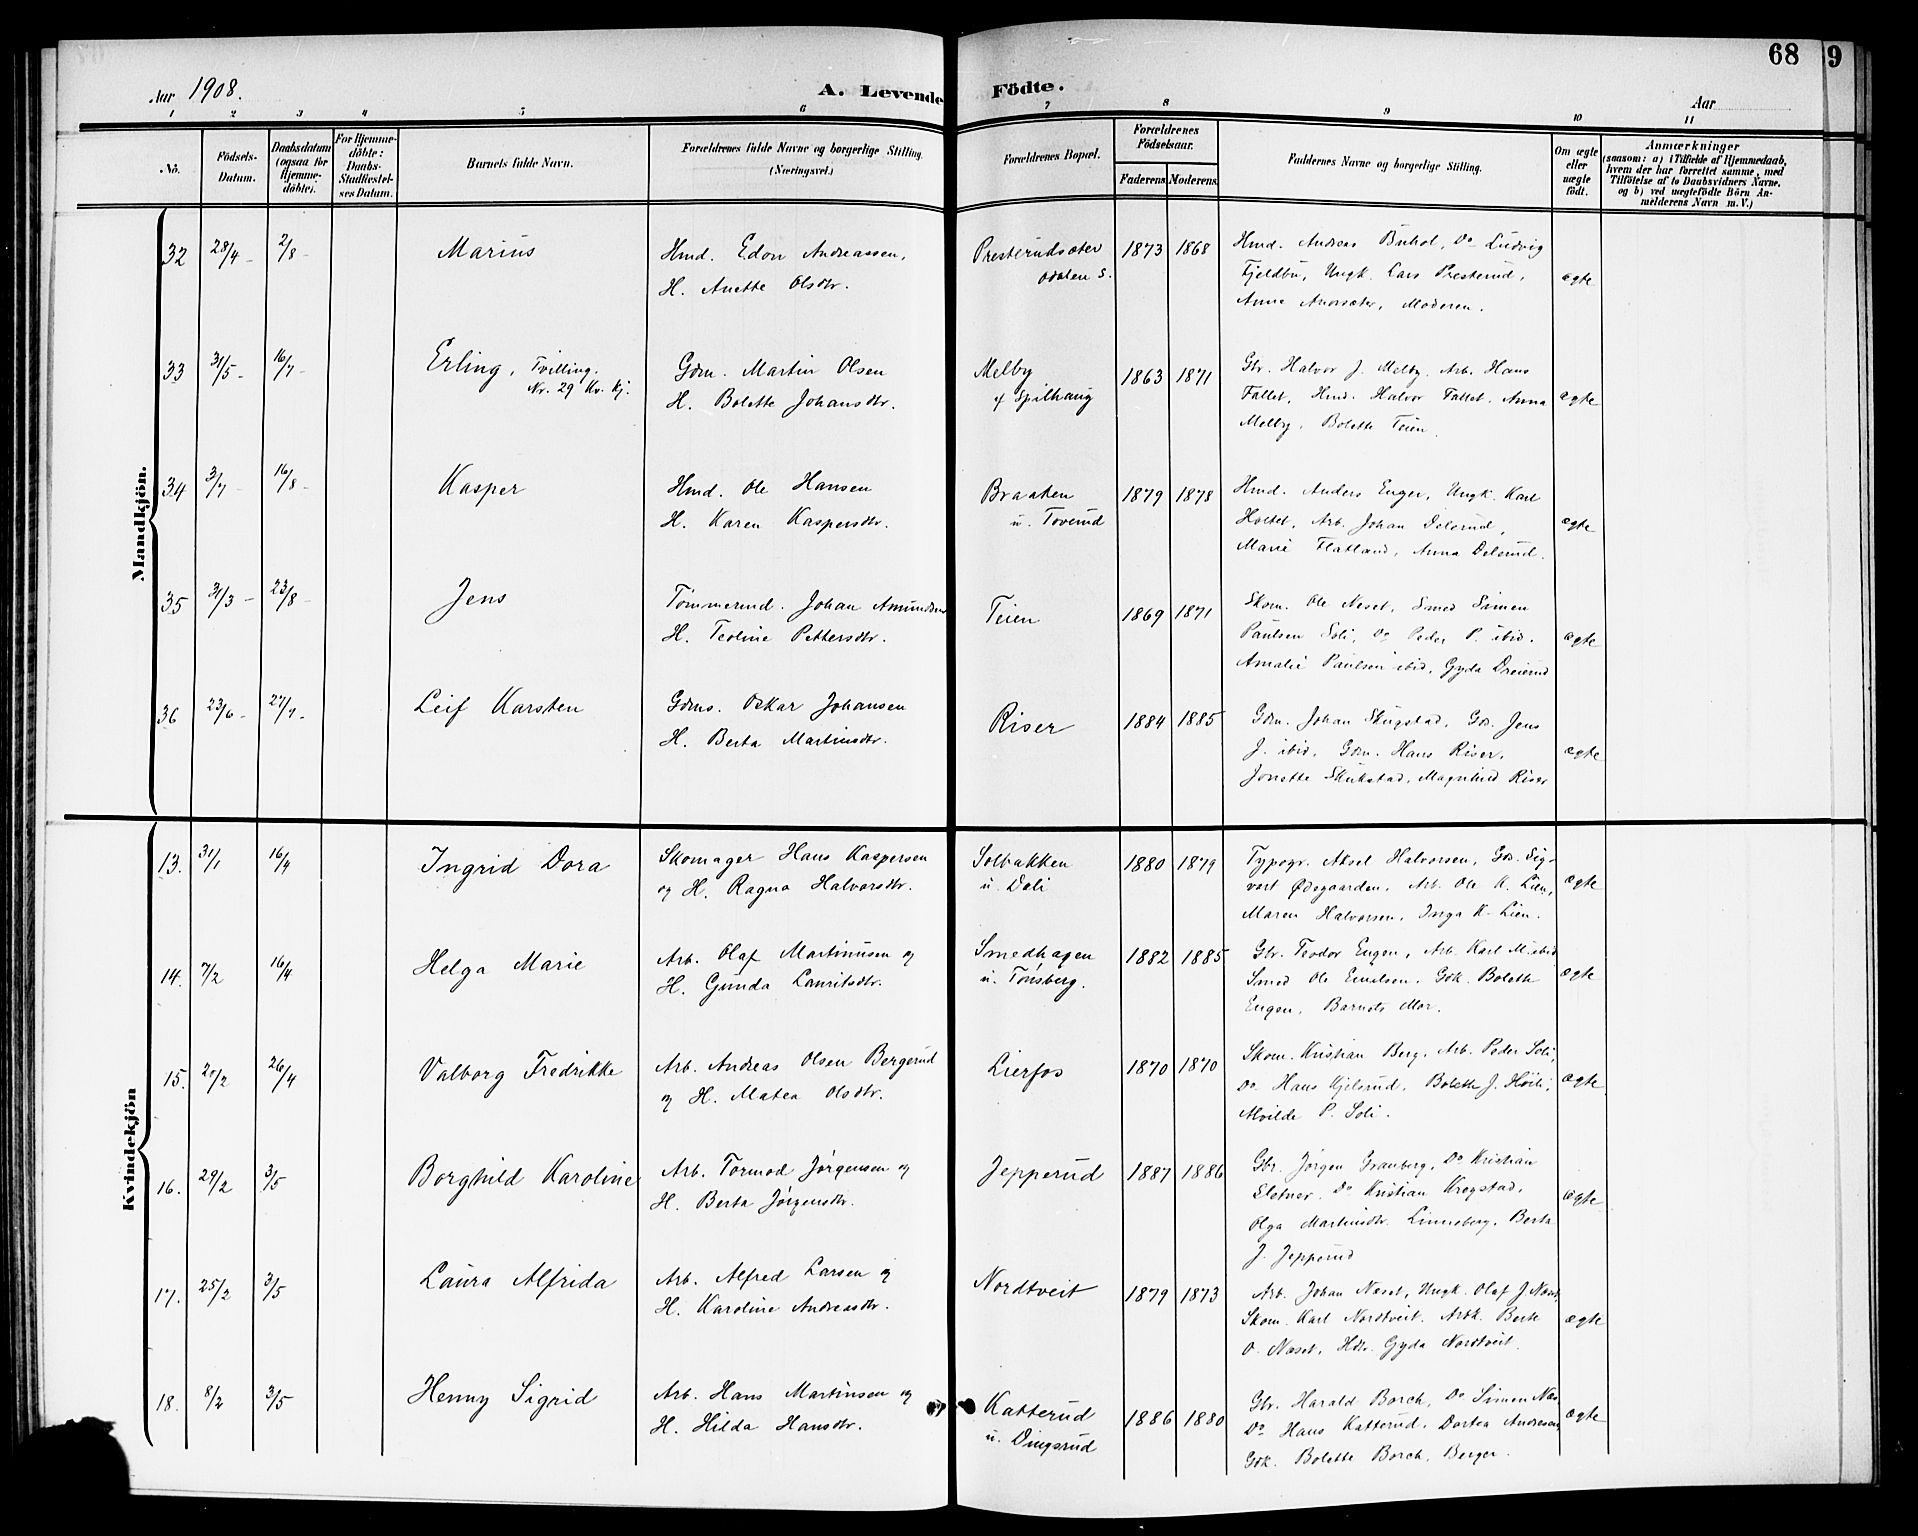 68 9
Aar 1908. A. Levende Födte. Aar
1 2 3 4 5 6 7 8 9 10 11
No. Födsels-Datum. Daabsdatum (ogsaa for Hjemme-döbte). For Hjemme-döbte: Daabs-Stadfæstel-ses Datum. Barnets fulde Navn. Forældrenes fulde Navne og borgerlige Stilling. (Næringsvei.) Forældrenes Bopæl. Forældrenes Födselsaar. Faderens. Moderens. Faddernes Navne og borgerlige Stilling. Om ægte eller uægte födt. Anmærkninger (saasom: a) i Tilfælde af Hjemmedaab, hvem der har forrettet samme, med Tilföielse af to Daabsvidners Navne, og b) ved uægtefödte Börn An-melderens Navn m. V.)
Mandkjön.
32 28/4 - 2/8 - Marius Hmd. Edon Andreassen, Presterudsæter 1873 1868 Hmd. Andreas Buhol, Do Ludvig
H. Anette Olsdtr. Odalen S. Fjeldbu, Ungk. Lars Presterud, ægte
Anne Anorsæter, Moderen.
33 31/5 - 16/7 - Erling, Tvilling. Gdm. Martin Olsen Melby 1863 1871 Gbr. Halvor J. Melby. Arb. Hans
Nr. 29 Kv. kj. H. Bolette Johansdtr. & Spilhaug Fallet, Hmd. Halvor Fallet. Anna ægte
Melby, Bolette Teien.
34 3/7 - 16/8 - Kasper Hmd. Ole Hansen Braaten 1879 1878 Hmd. Anders Enger, Ungk. Karl
H. Karen Kaspersdtr. u. Toverud Holtet, Arb. Johan Delerud, ægte
Marie Flatland, Anna Delerud.
35 31/3 - 23/8 - Jens Tømmermd. Johan Amundsen Teien 1869 1871 Skom. Ole Neset, Smed Simen
H. Teoline Pettersdtr. Paulsen Soli, Do Peder P. ibid. ægte
Amalie Paulsen ibid, Gyda Dreierud
36 23/6 - 27/7 - Leif Karsten Gdms. Oskar Johansen Riser 1884 1885 Gdm. Johan Skugstad, Gds. Jens
H. Berta Martinsdtr. J. ibid, Gdm. Hans Riser, ægte
Jonette Skukstad, Magnhild Riser
Kvindekjön
13. 31/1 16/4 Ingrid Dora Skomager Hans Kaspersen Solbakken 1880 1879 Typogr. Aksel Halvorsen, Gds. Sig-
og H. Ragna Halvorsdtr. u. Deli vart Ødegaarden, Arb. Ole K. Lien, ægte
Maren Halvorsen, Inga K. Lien.
14. 7/2 16/4 Helga Marie Arb. Olaf Martinusen og Smedhagen 1882 1885 Gbr. Teodor Engen, Arb. Karl M. ibid
H. Gunda Lauritsdtr. u. Tønsberg. Smed Ole Emilsen. Gdk. Bolette ægte
Engen, Barnets Mor.
15. 21/2 26/4 Valborg Fredrikke Arb. Andreas Olsen Bergerud Lierfos 1870 1870 Skom. Kristian Berg, Arb. Peder Soli,
og H. Matea Olsdtr. Do Hans Kjelsrud, Bolette J. Høili, ægte
Alvilde P. Soli.
16. 29/2 3/5 Borghild Karoline Arb. Tormod Jørgensen og Jepperud 1887 1886 Gbr. Jørgen Granberg, Do Kristian
H. Berta Jørgensdtr. Sletner. Do Kristian Krogstad, ægte
Olga Martinsdtr. Linneberg, Berta
J. Jepperud
17. 25/2 3/5 Laura Alfrida Arb. Alfred Larsen og Nordtveit 1879 1873 Arb. Johan Næset, Ungk. Olaf J. Næset,
H. Karoline Andreasdtr. Skom. Karl Nordtveit. Arbk. Berte ægte
O. Næset, Hdtr. Gyda Nordtveit.
18. 8/2 3/5 Henny Sigrid Arb. Hans Martinsen og Katterud 1886 1880 Gbr. Harald Borch, Do Simen Næs,
H. Hilda Hansdtr. u. Dingsrud Do Hans Katterud, Dortea Andresen, ægte
Gdk. Bolette Borch, Berger.